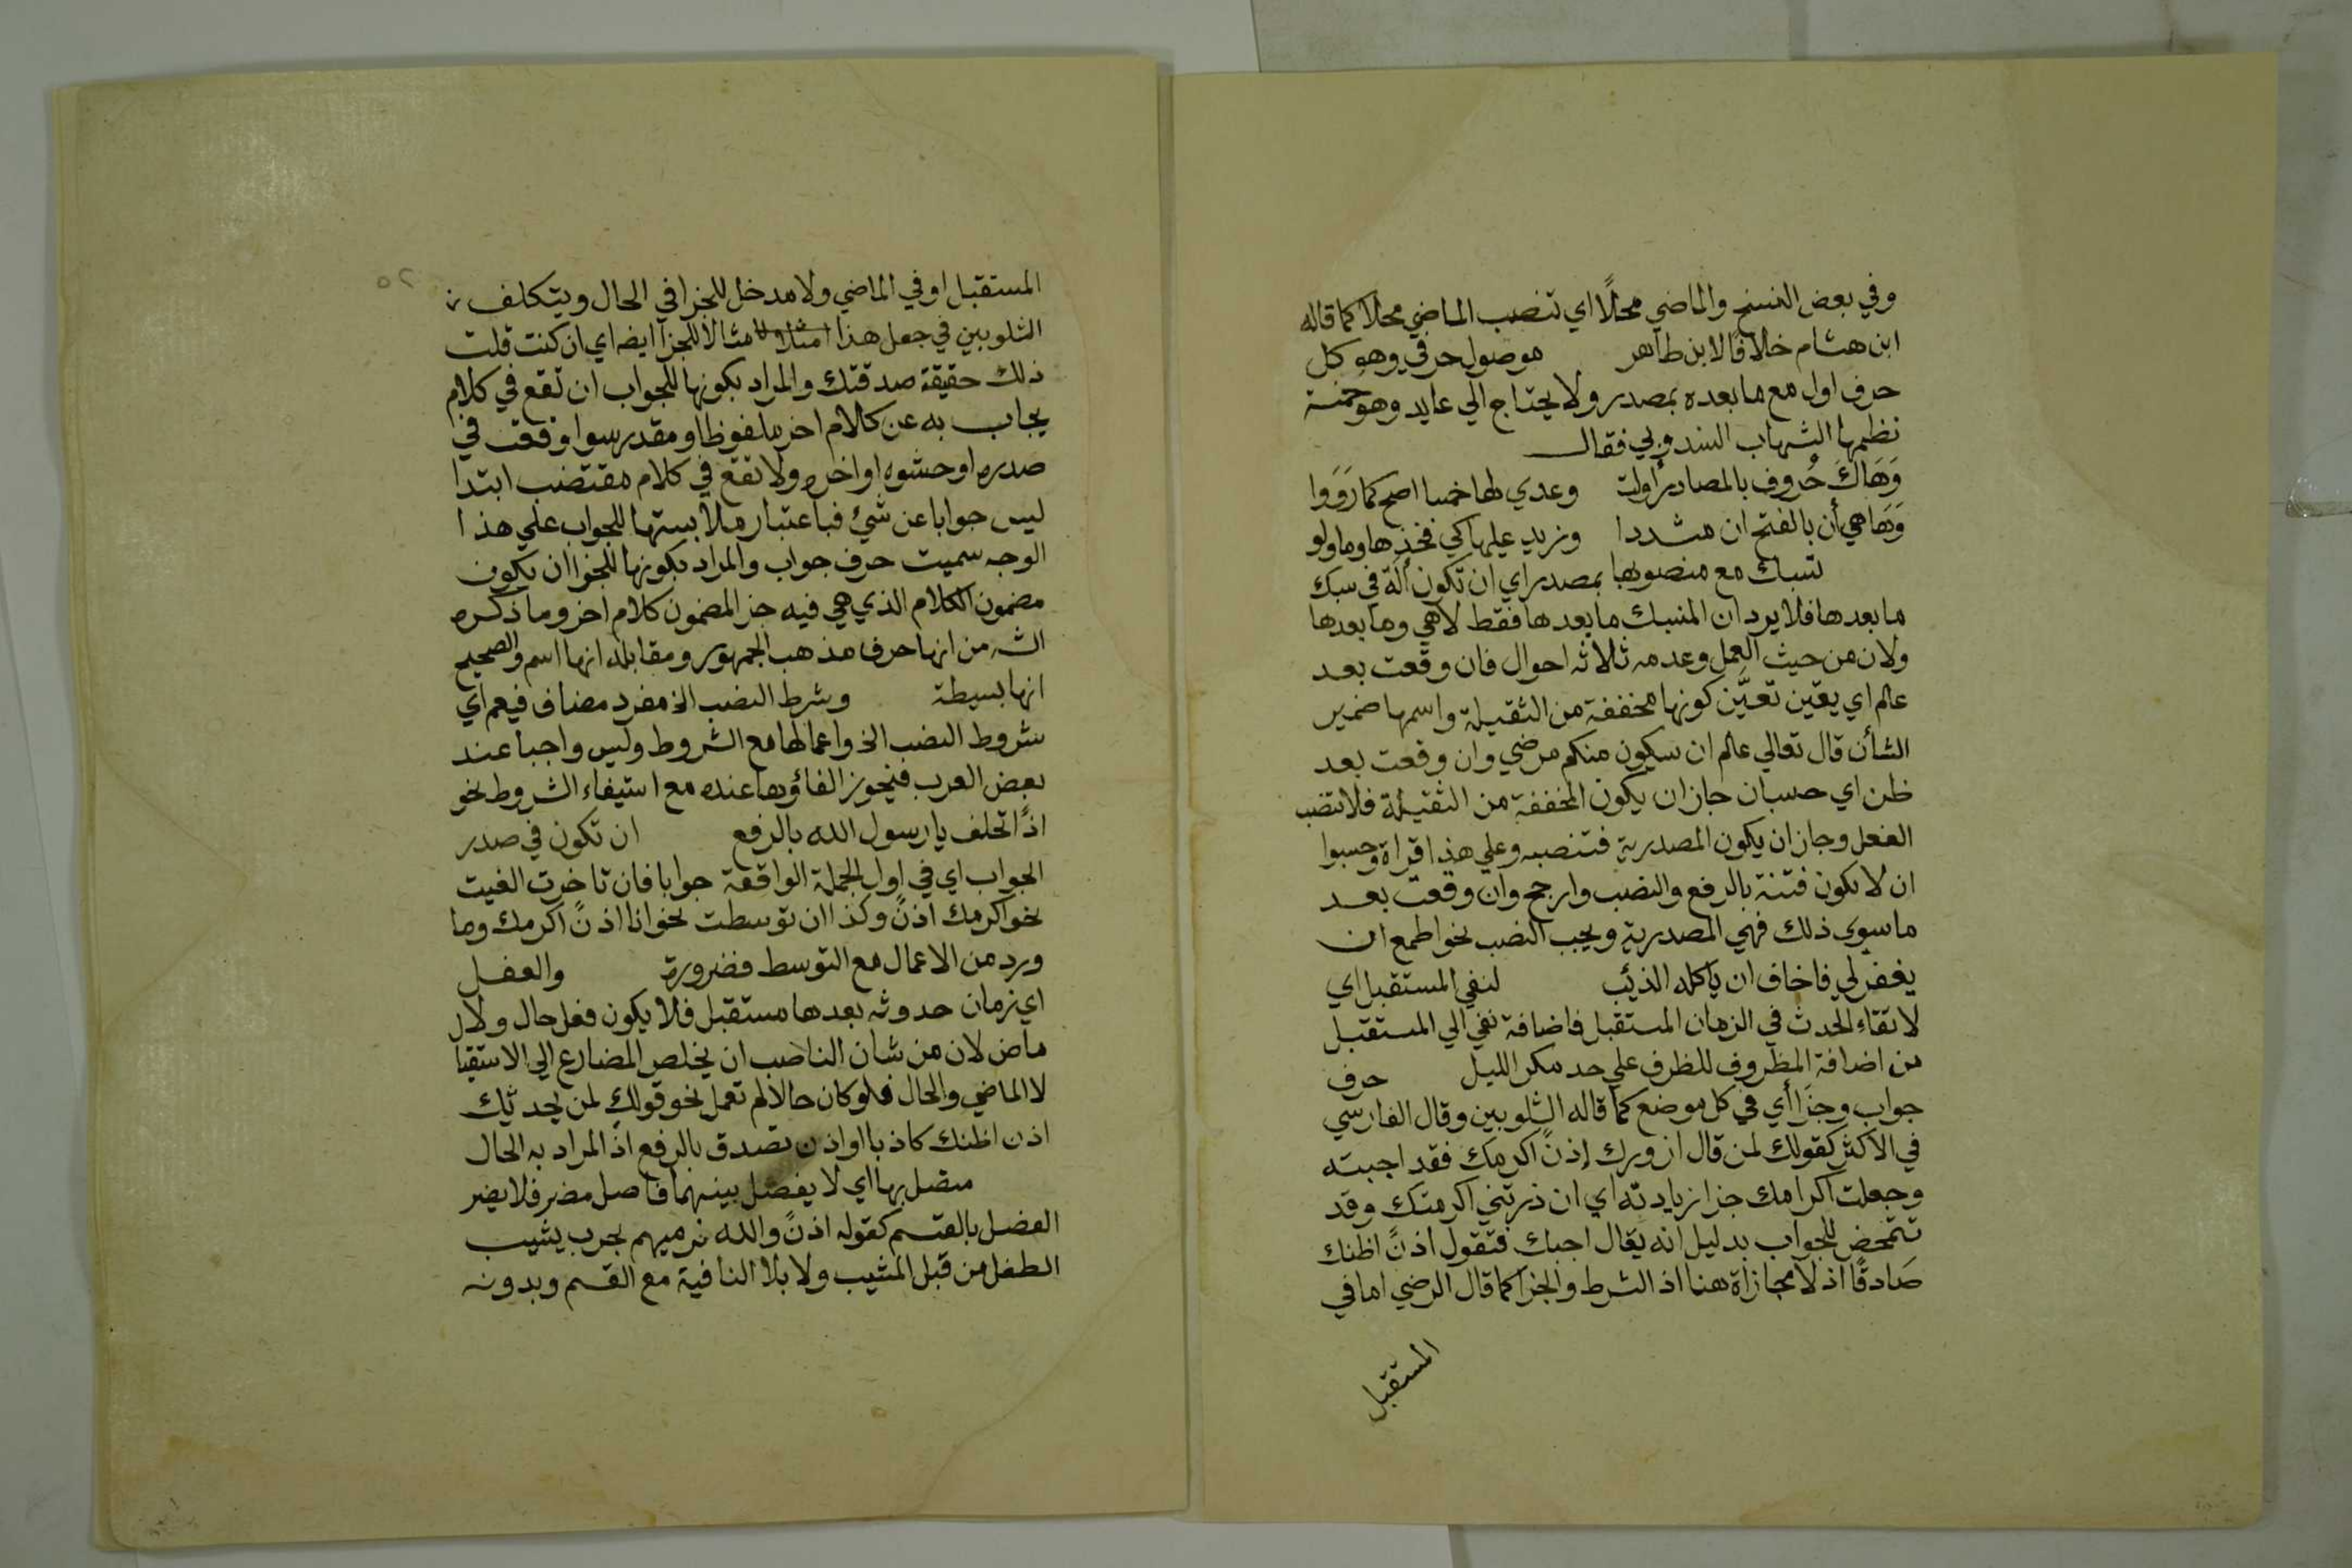 وفي بعض النسخ والماضي محلًا اي تنصب الماضي محلا كما قاله
ابن هشام خلافًا لابن طاهر موصول حرفي وهو كل
حرف اول مع ما بعده بمصدر ولا يحتاج الي عايد وهو خمسة
نظمها الشهاب السندوبي فقال
وَهَاكَ حُروف بالمصادر أُولت وعدي لها خمسا اصح كما رَوَوا
وَهَا هي أن بالفتح ان مشددا وزيد عليها كي فخذها وما ولو
تسبك مع منصوبها بمصدر اي ان تكون آلة في سبك
ما بعدها فلا يرد ان المنسبك ما بعدها فقط لا هي وما بعدها
ولان من حيث العمل وعدمه ثلاثه احوال فان وقعت بعد
علم اي يقين تعيَّن كونها مخففة من الثقيلة واسمها ضمير
الشأن قال تعالي علم ان سيكون منكم مرضي وان وقعت بعد
ظن اي حسبان جاز ان يكون المخففة من الثقيلة فلا تنصب
الفعل وجاز ان يكون المصدرية فتنصبه وعلي هذا قراة وحسبوا
ان لا تكون فتنة بالرفع والنصب وارجح وان وقعت بعد
ما سوي ذلك فهي المصدرية ويجب النصب نحو اطمع ان
يغفر لي فاخاف ان ياكله الذئب لنفي المستقبل اي
لانتفاء الحدث في الزمان المستقبل فاضافة نفي الي المستقبل
من اضافة المظروف للظرف علي حد مكر الليل حرف
جواب وجزا أي في كل موضع كما قاله الشلوبين وقال الفارسي
في الاكثر كقولك لمن قال ازورك إذنً اكرمك فقد اجبته
وجعلت اكرامك جزا زيادته اي ان زرتني اكرمتك وقد
تتمحض للجواب بدليل انه يقال احبك فتقول اذنً اظنك
صَادقًا اذ لا مجازاة هنا اذ الشرط والجزا كما قال الرضي اما في
المستقبل
٢٥
المستقبل او في الماضي ولا مدخل للجزا في الحال ويتكلف
الشلوبين في جعل هذا مثالا للجزا ايضه اي ان كنت قلت
ذلك حقيقة صدقتك والمراد بكونها للجواب ان تقع في كلام
يجاب به عن كلام اخر ملفوظ او مقدر سوا وقعت في
صدره او حشوه او اخره ولا تقع في كلام مقتضب ابتدا
ليس جوابا عن شئ فباعتبار ملابستها للجواب علي هذا
الوجه سميت حرف جواب والمراد بكونها للجزا ان يكون
مضمون الكلام الذي هي فيه جزا لمضمون كلام اخر وما ذكره
الشه من انها حرف مذهب الجمهور ومقابله انها اسم والصحيح
انها بسيطة وشرط النصب الخ مفرد مضاف فيعم اي
شروط النصب الخ واعمالها مع الشروط وليس واجبا عند
بعض العرب فيجوز الغاؤها عنده مع استيفاء الشروط نحو
اذًا تحلف يا رسول الله بالرفع ان تكون في صدر
الجواب اي في اول الجملة الواقعة جوابا فان تاخرت الغيت
نحو اكرمك اذنً وكذا ان توسطت نحو انا اذنً اكرمك وما
ورد من الاعمال مع التوسط فضرورة والفعل
اي زمان حدوثه بعدها مستقبل فلا يكون فعل حال ولا
ماض لان من شان الناصب ان يخلص المضارع الي الاستقبا
لا الماضي والحال فلو كان حالا لم تعمل نحو قولك لمن يحدثك
اذن اظنك كاذبا او اذن تصدق بالرفع اذ المراد به الحال
متصل بها اي لا يفصل بينهما فاصل مضر فلا يضر
الفصل بالقسم كقوله اذنً والله نرميهم بحرب يشيب
الطفل من قبل المشيب ولا بلا النافية مع القسم وبدونه